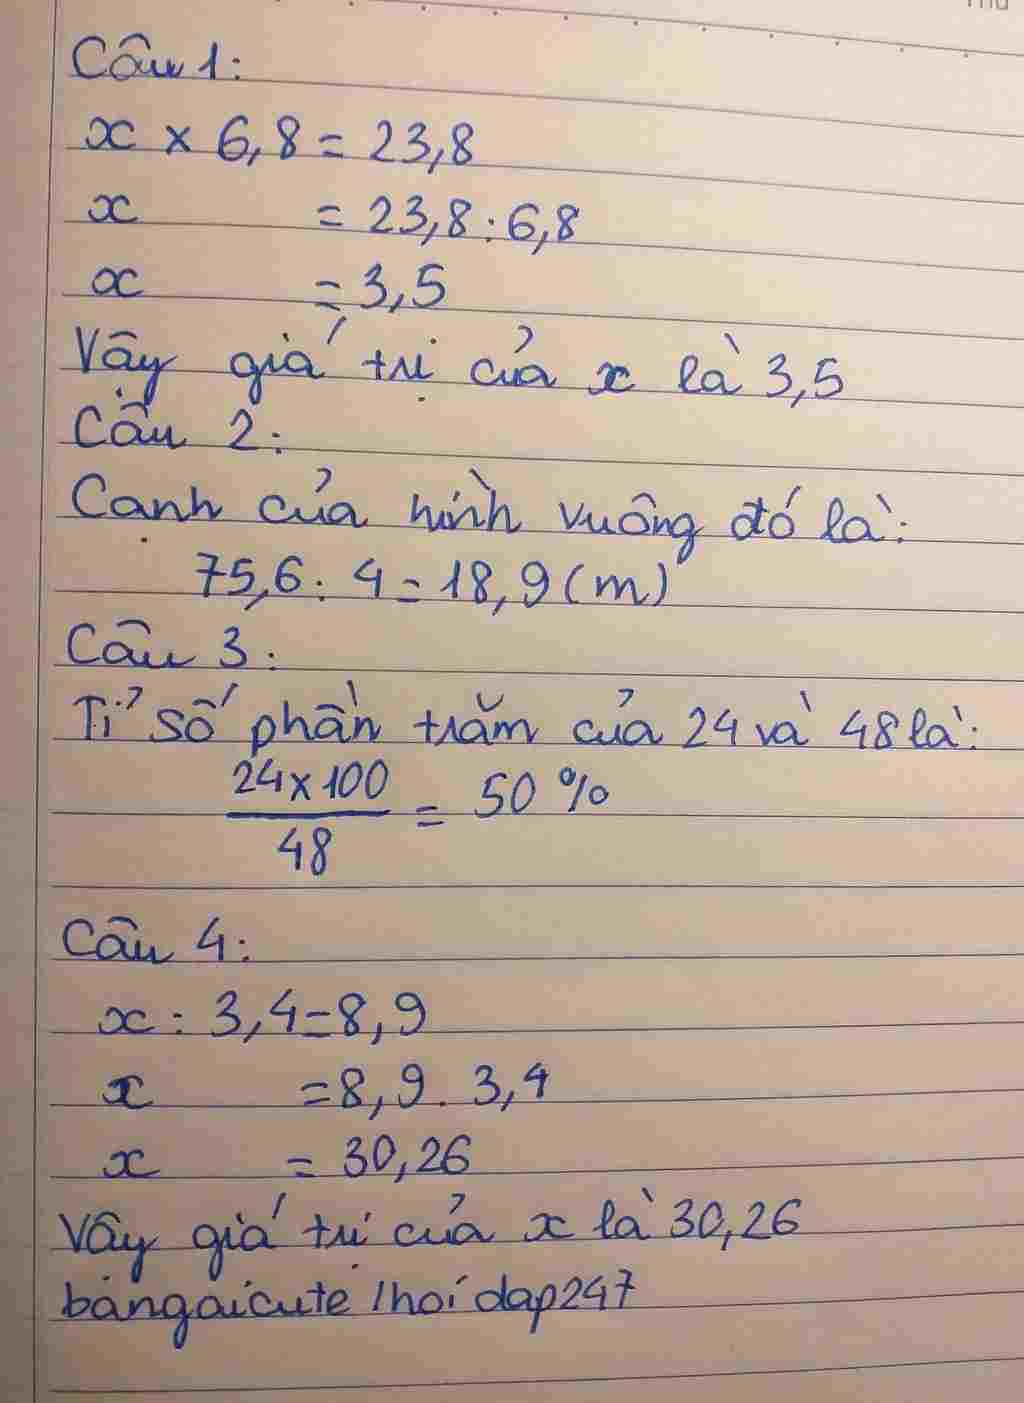 Câu 1:
x × 6,8 = 23,8
x = 23,8 : 6,8
x = 3,5
Vậy giá trị của x là 3,5
Câu 2:
Cạnh của hình vuông đó là:
75,6 : 4 = 18,9 (m)
Câu 3:
Tỉ số phần trăm của 24 và 48 là:
24 x 100
= 50 %
48
Câu 4:
x : 3,4 = 8,9
x = 8,9 . 3,4
x = 30,26
Vậy giá trị của x là 30,26
bangaicute / hoidap247